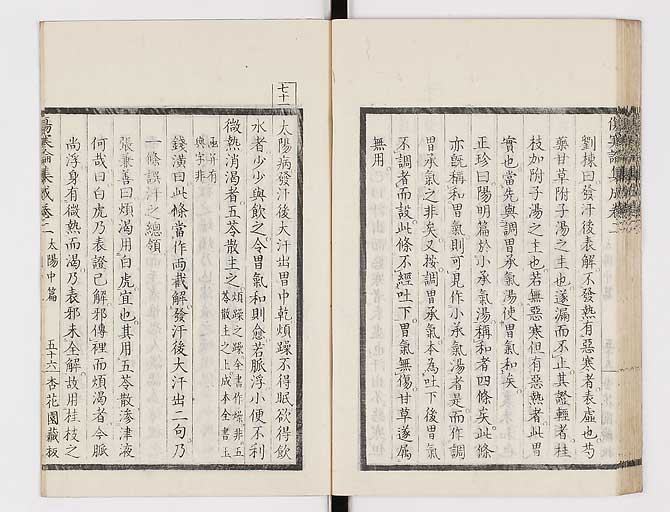 劉棟曰發汗後表解不發熱有惡寒者表虛也芍
藥甘草附子湯之主也遂漏而不止其證輕者桂
枝加附子湯之主也若無惡寒但有惡熱者此胃
實也當先與調胃承氣湯使胃氣和矣
正珍曰陽明篇於小承氣湯稱和者四條矣此條
亦旣稱和胃氣則可見作小承氣湯者是而作調
胃承氣之非矣又按調胃承氣本為吐下後胃氣
不調者而設此條不經吐下胃氣無傷甘草遂屬
無用
傷寒論集成卷二
七十一
太陽病發汗後大汗出胃中乾煩躁不得眠欲得飲
水者少少與飲之令胃氣和則愈若脈浮小便不利
微熱消渴者五苓散主之
煩躁之躁全書作燥非五
苓散主之上成本全書玉
函并有
與字非
錢潢曰此條當作兩截解發汗後大汗出二句乃
一條誤汗之總領
張兼善曰煩渴用白虎宜也其用五苓散滲津液
何哉曰白虎乃表證已解邪傳裡而煩渴者今脈
尚浮身有微熱而渴乃表邪未全解故用桂枝之
傷寒論集成卷二 太陽中篇 五十六 杏花園藏板